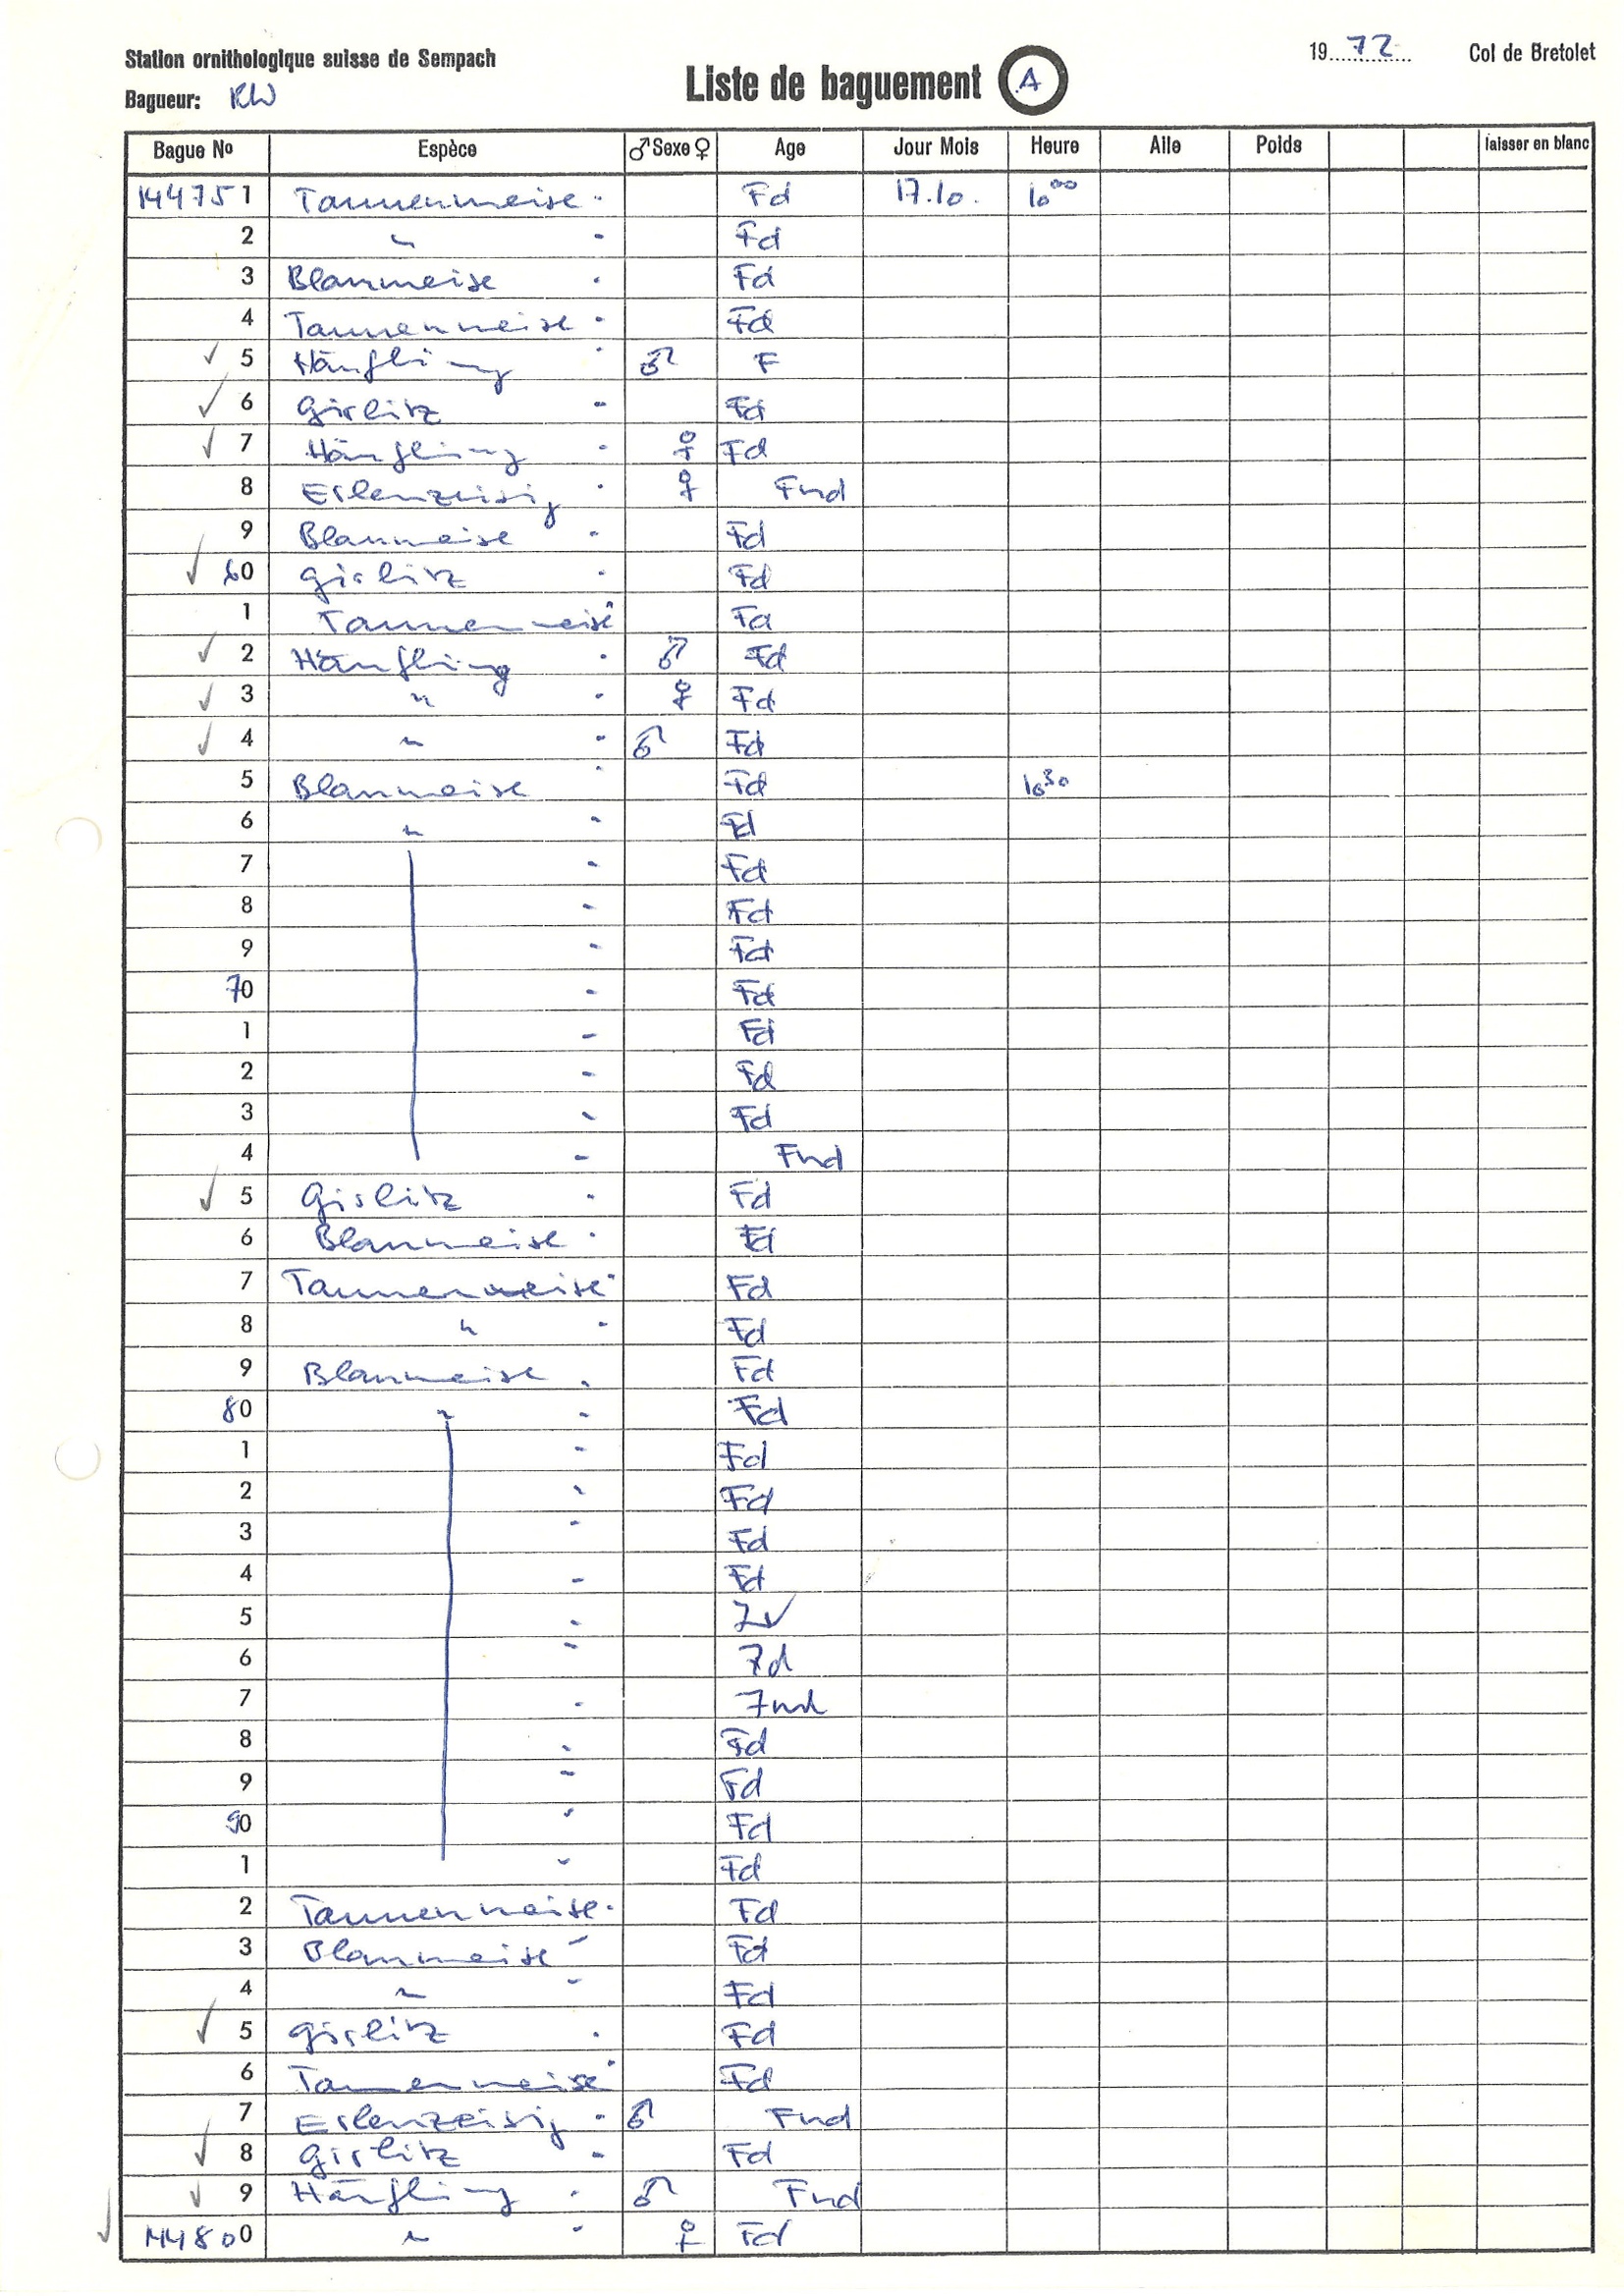 Station ornithologique suisse de Sempach
19 72 Col de Bretolet
Liste de baguement A
Bagueur: RW
Bague No Espèce ♂ Sexe ♀ Age Jour Mois Heure Aile Poids laisser en blanc
144751 Tannenmeise Fd 17.10. 10 00
2 " Fd
3 Blaumeise Fd
4 Tannenmeise Fd
✓ 5 Hänfling ♂ F
✓ 6 Girlitz Fd
✓ 7 Hänfling ♀ Fd
8 Erlenzeisig ♀ Fnd
9 Blaumeise Fd
✓ 60 Girlitz Fd
1 Tannenmeise Fd
✓ 2 Hänfling ♂ Fd
✓ 3 " ♀ Fd
✓ 4 " ♂ Fd
5 Blaumeise Fd 10 30
6 " Fd
7 Fd
8 Fd
9 Fd
70 Fd
1 Fd
2 Fd
3 Fd
4 Fnd
✓ 5 Girlitz Fd
6 Blaumeise Fd
7 Tannenmeise Fd
8 " Fd
9 Blaumeise Fd
80 " Fd
1 Fd
2 Fd
3 Fd
4 Fd
5
6 Fd
7 Fnd
8 Fd
9 Fd
90 Fd
1 Fd
2 Tannenmeise Fd
3 Blaumeise Fd
4 " Fd
✓ 5 Girlitz Fd
6 Tannenmeise Fd
7 Erlenzeisig ♂ Fnd
✓ 8 Girlitz Fd
✓ 9 Hänfling ♂ Fnd
✓ 144800 " ♀ Fd